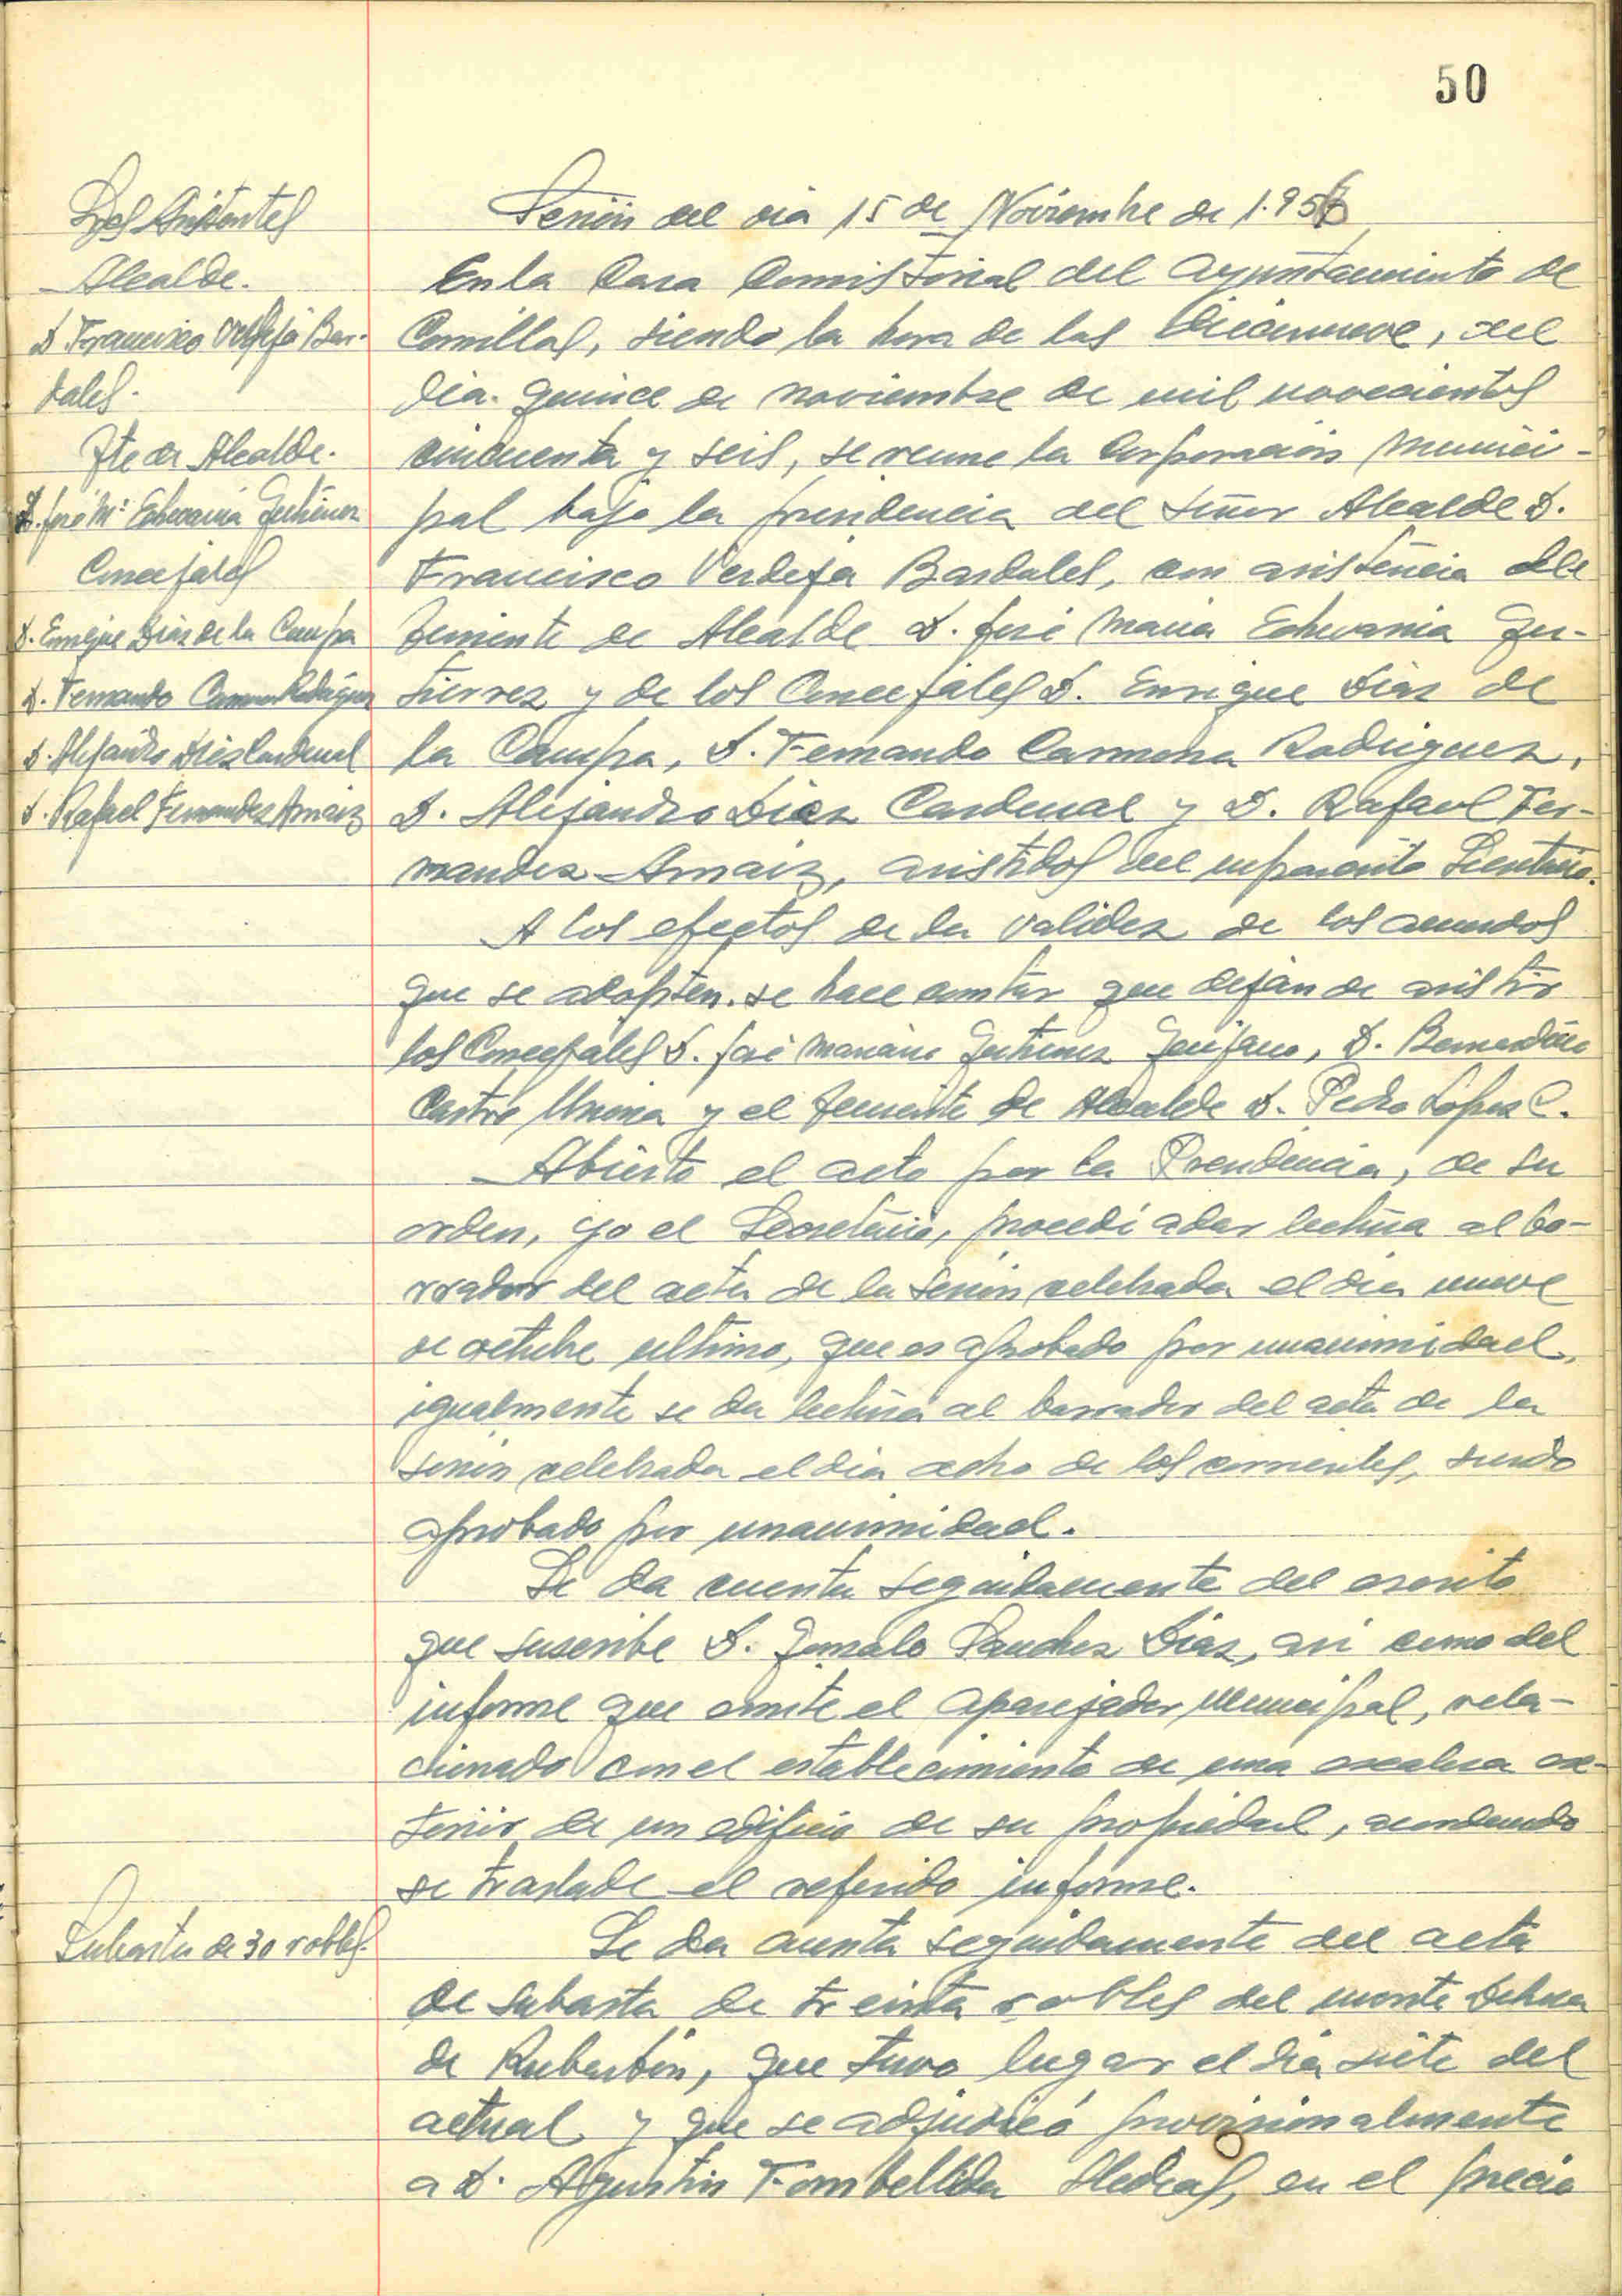 50
Sres Asistentes
Alcalde.
D Francisco Verdeja Bar-
dales.
Tte de Alcalde.
D. José Mª Echevarria Gutierrez
Concejales
D. Enrique Diaz de la Campa
D. Fernando Carmona Rodriguez
D. Alejandro Diez Cardenal
D. Rafael Fernandez Arnaiz
Sesión del dia 15 de Noviembre de 1.956
En la Casa Consistorial del Ayuntamiento de
Comillas, siendo la hora de las diecinueve, del
dia quince de noviembre de mil novecientos
cincuenta y seis, se reune la Corporación Munici-
pal bajo la presidencia del Señor Alcalde D.
Francisco Verdeja Bardales, con asistencia del
Teniente de Alcalde D. José Maria Echevarria Gu-
tierrez y de los Concejales D. Enrique Diaz de
la Campa, D. Fernando Carmona Rodriguez,
D. Alejandro Diez Cardenal y D. Rafael Fer-
nandez Arnaiz, asistidos del infrascrito Secretario.
A los efectos de la validez de los acuerdos
que se adopten. se hace constar que dejan de asistir
los Concejales D. José Mariano Gutierrez Quijano, D. Bernardino
Castro y el Teniente de Alcalde D. Pedro Lopez C.
Abierto el acto por la Presidencia, de su
orden, yo el Secretario, procedi a dar lectura al bo-
rrador del acta de la sesión celebrada el dia nueve
de octubre ultimo, que es aprobado por unanimidad,
igualmente se da lectura al borrador del acta de la
sesión celebrada el dia ocho de los corrientes, siendo
aprobado por unanimidad.
Se da cuenta seguidamente del escrito
que suscribe D. Gonzalo Sanchez Diaz, asi como del
informe que emite el Aparejador Municipal, rela-
cionado con el establecimiento de una escalera ex-
terior de un edificio de su propiedad, acordando
se traslade el referido informe.
Subasta de 30 robles.
Se da cuenta seguidamente del acta
de subasta de treinta robles del monte Dehesa
de Rubarbon, que tuvo lugar el dia siete del
actual y que se adjudicó provisionalmente
a D. Agustin Fombellida en el precio